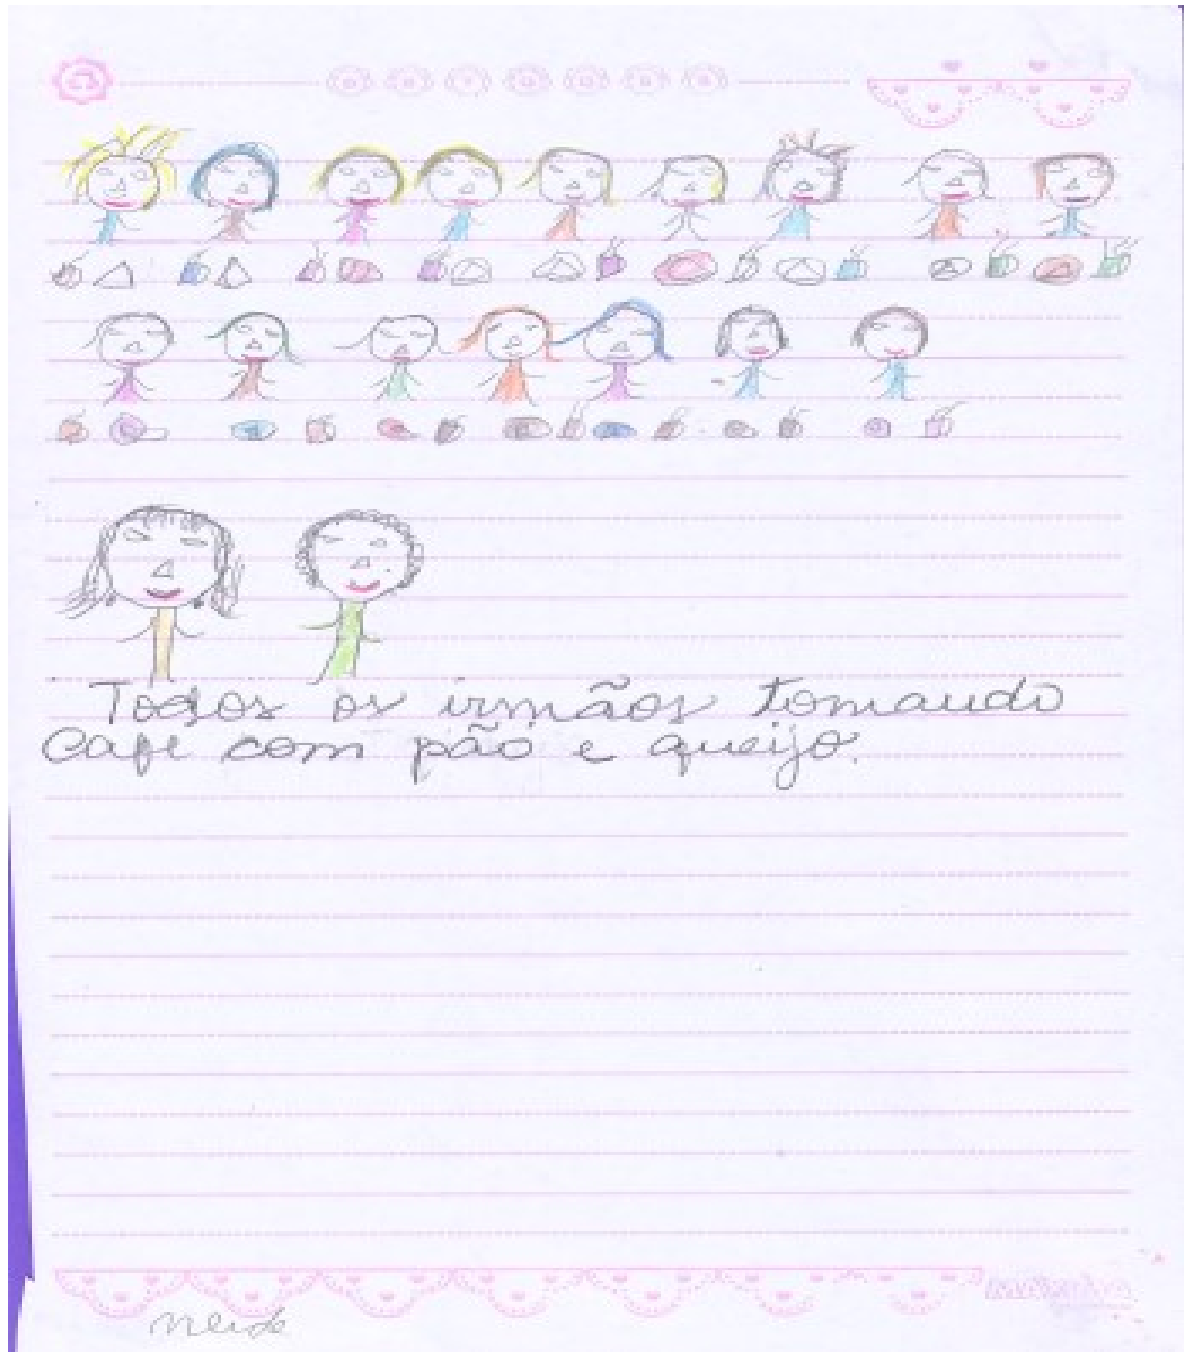 Todos os irmãos tomando
Café com pão e queijo.
Neide